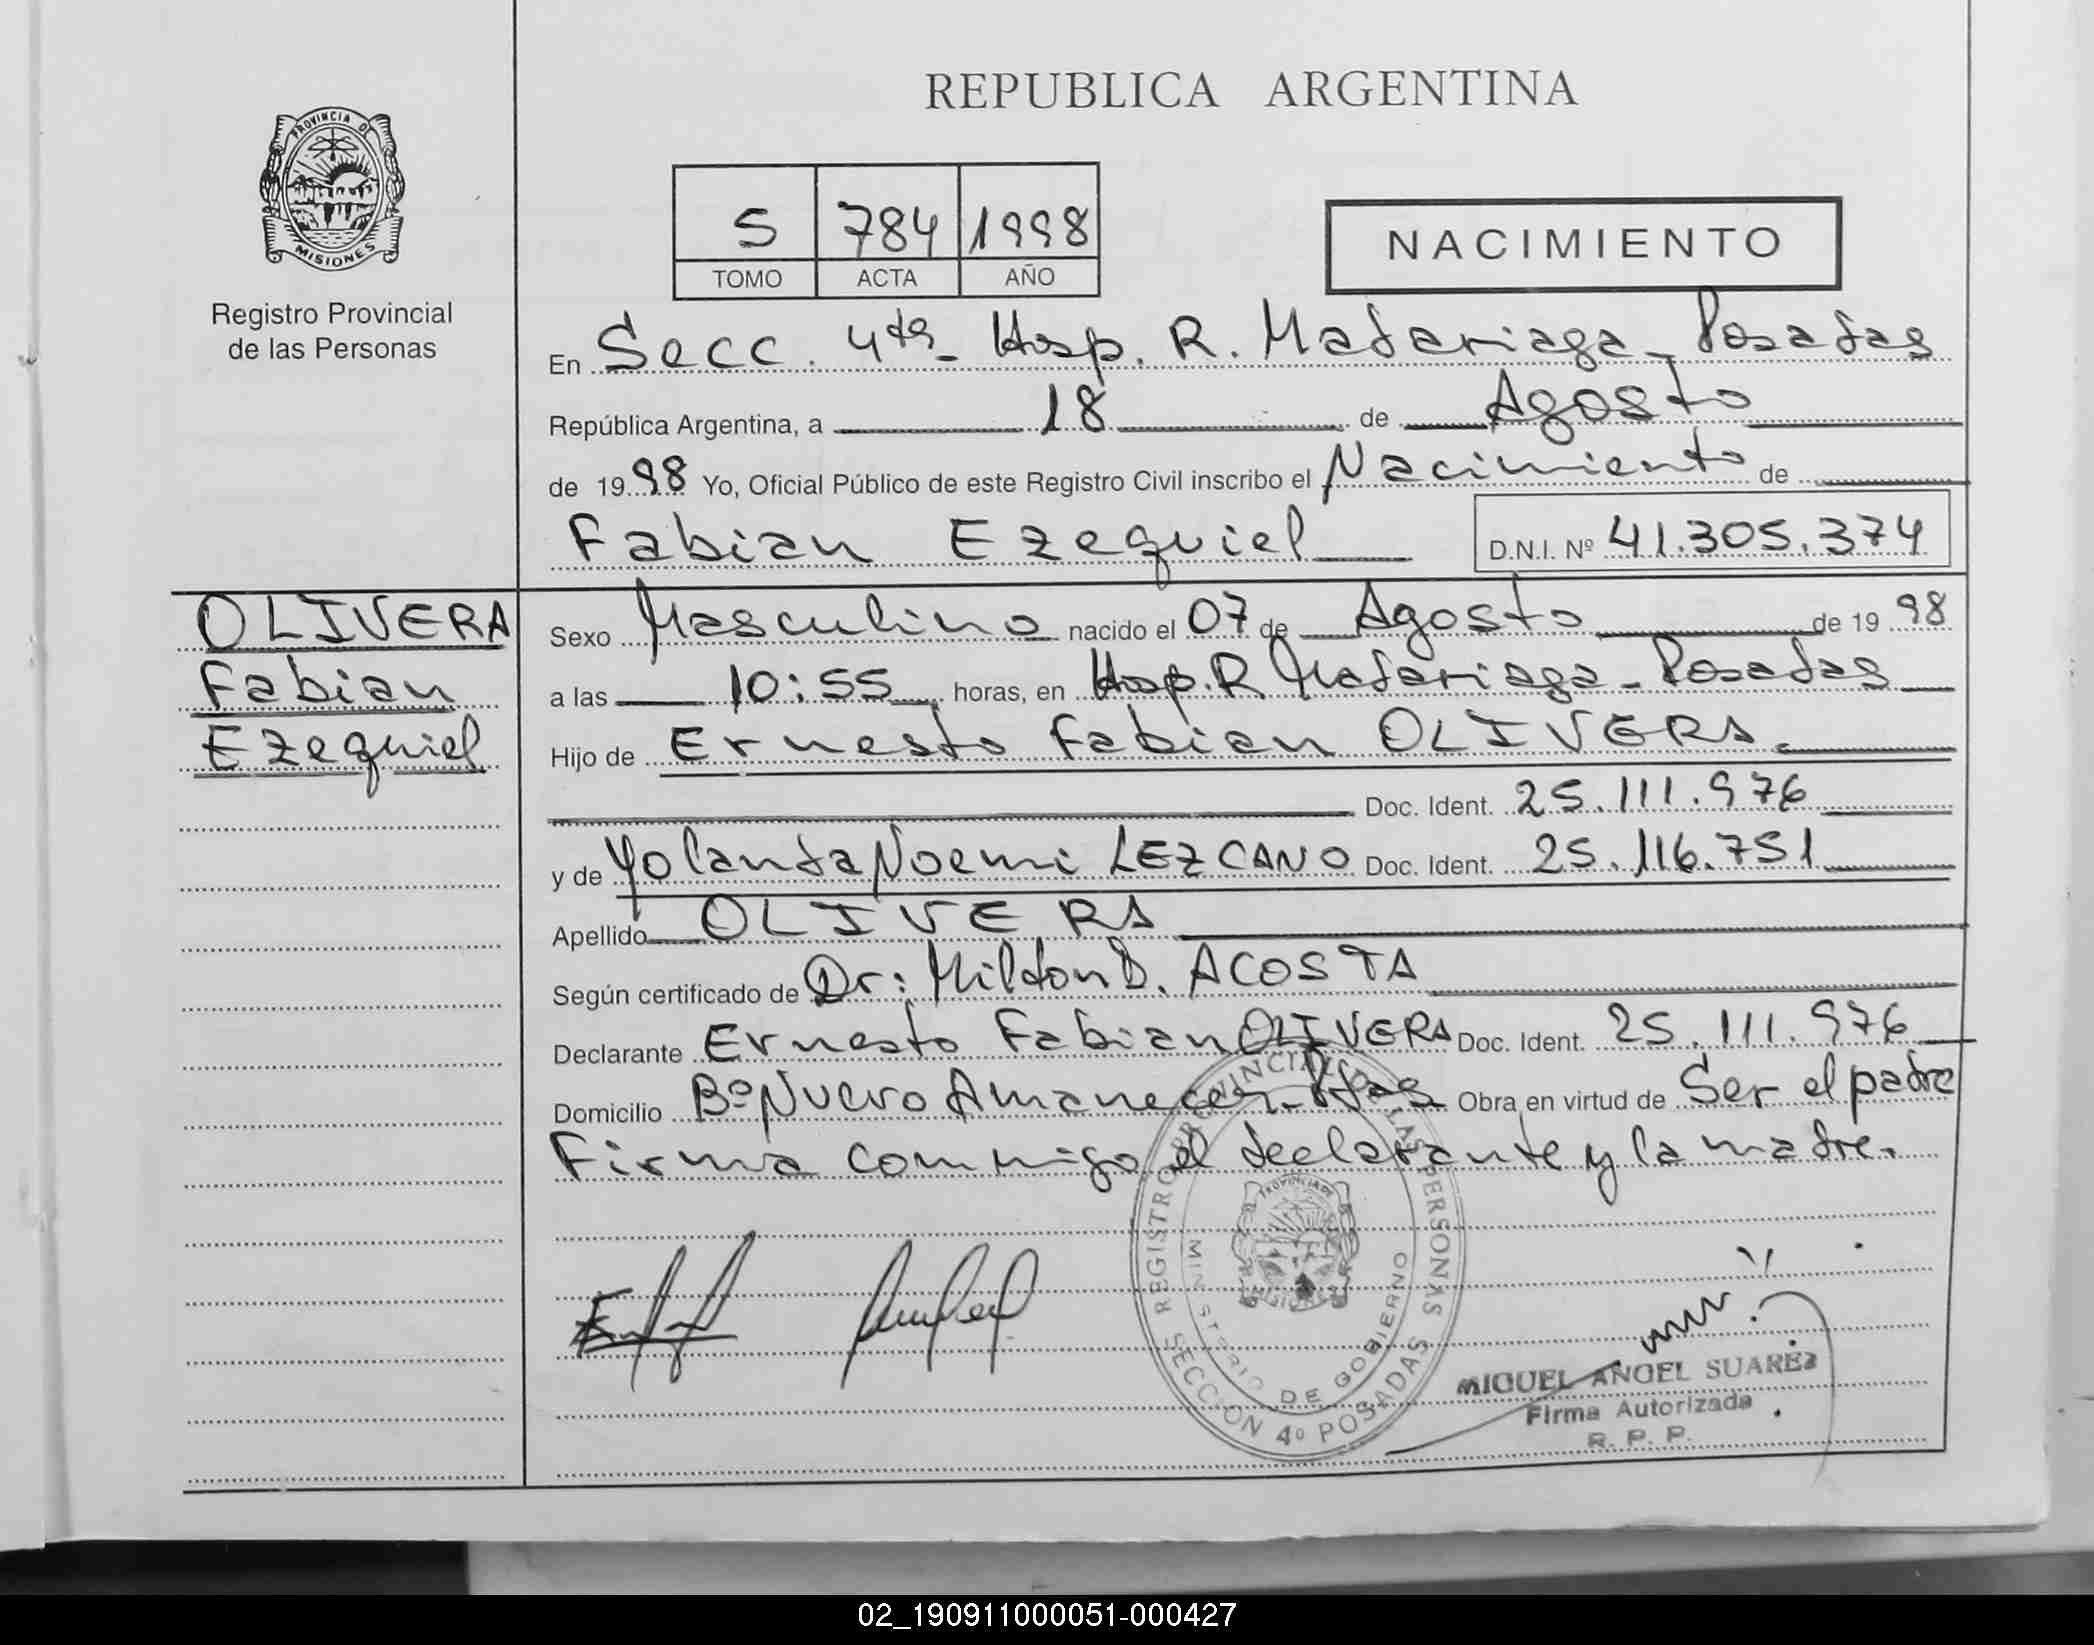 REPUBLICA ARGENTINA
PROVINCIA DE
MISIONES
Registro Provincial
de las Personas
5 784 1998
TOMO ACTA AÑO
NACIMIENTO
En Secc. 4ta_ Hosp. R. Madariaga_Posadas
República Argentina, a 18 de Agosto
de 1998 Yo, Oficial Público de este Registro Civil inscribo el Nacimiento de
Fabian Ezequiel D.N.I. Nº 41.305.374
OLIVERA
Fabian
Ezequiel
Sexo Masculino nacido el 07 de Agosto de 1998
a las 10:55 horas, en Hosp. R Madariaga_Posadas
Hijo de Ernesto Fabian OLIVERA
Doc. Ident. 25.111.976
y de Yolanda Noemi LEZCANO Doc. Ident. 25.116.751
Apellido OLIVERA
Según certificado de Dr: Milton D. ACOSTA
Declarante Ernesto Fabian OLIVERA Doc. Ident. 25.111.976
Domicilio Bº Nuevo Amanecer_Pdas Obra en virtud de Ser el padre
Firma conmigo el declarante y la madre.
REGISTRO PROVINCIAL DE LAS PERSONAS
MINISTERIO DE GOBIERNO
SECCION 4º POSADAS
MIGUEL ANGEL SUAREZ
Firma Autorizada
R. P. P.
02_190911000051-000427